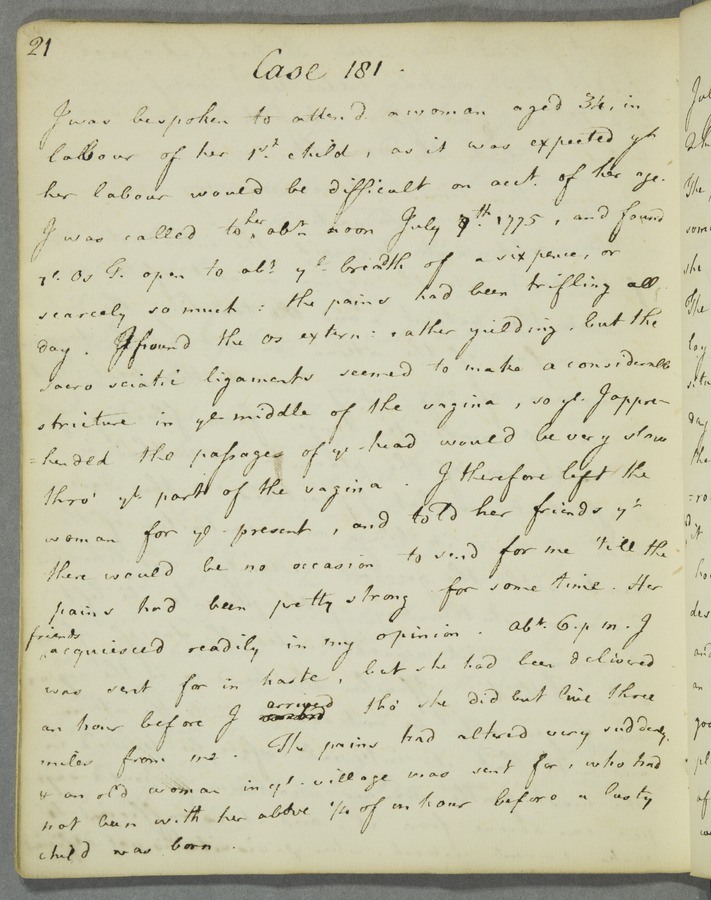 21
Case 181.
I was bespoken to attend a woman aged 34, in
labour of her 1st child, as it was expected yt
her labour would be difficult on acct. of her age.
I was called to her abt. noon July 9th 1775, and found
ye. Os T. open to abt. ye. breadth of a sixpence, or
scarcely so much: the pains had been trifling all
day. I found the os extern: rather yielding, but the
sacro sciatic ligaments seemed to make a considerable
stricture in ye. middle of the vagina, so yt. I appre-
=hended the passage of ye. head would be very slow
thro' yt. part of the vagina. I therefore left the
woman for ye. present, and told her friends yt
there would be no occasion to send for me 'till the
pains had been pretty strong for some time. Her
friends acquiesced readily in my opinion. Abt. 6. p m. I
was sent for in haste, but she had been delivered
an hour before I arrived tho' she did but live three
miles from me. The pains had altered very suddenly,
& an old woman in ye. village was sent for, who had
not been with her above 1/4 of an hour before a lusty
child was born.